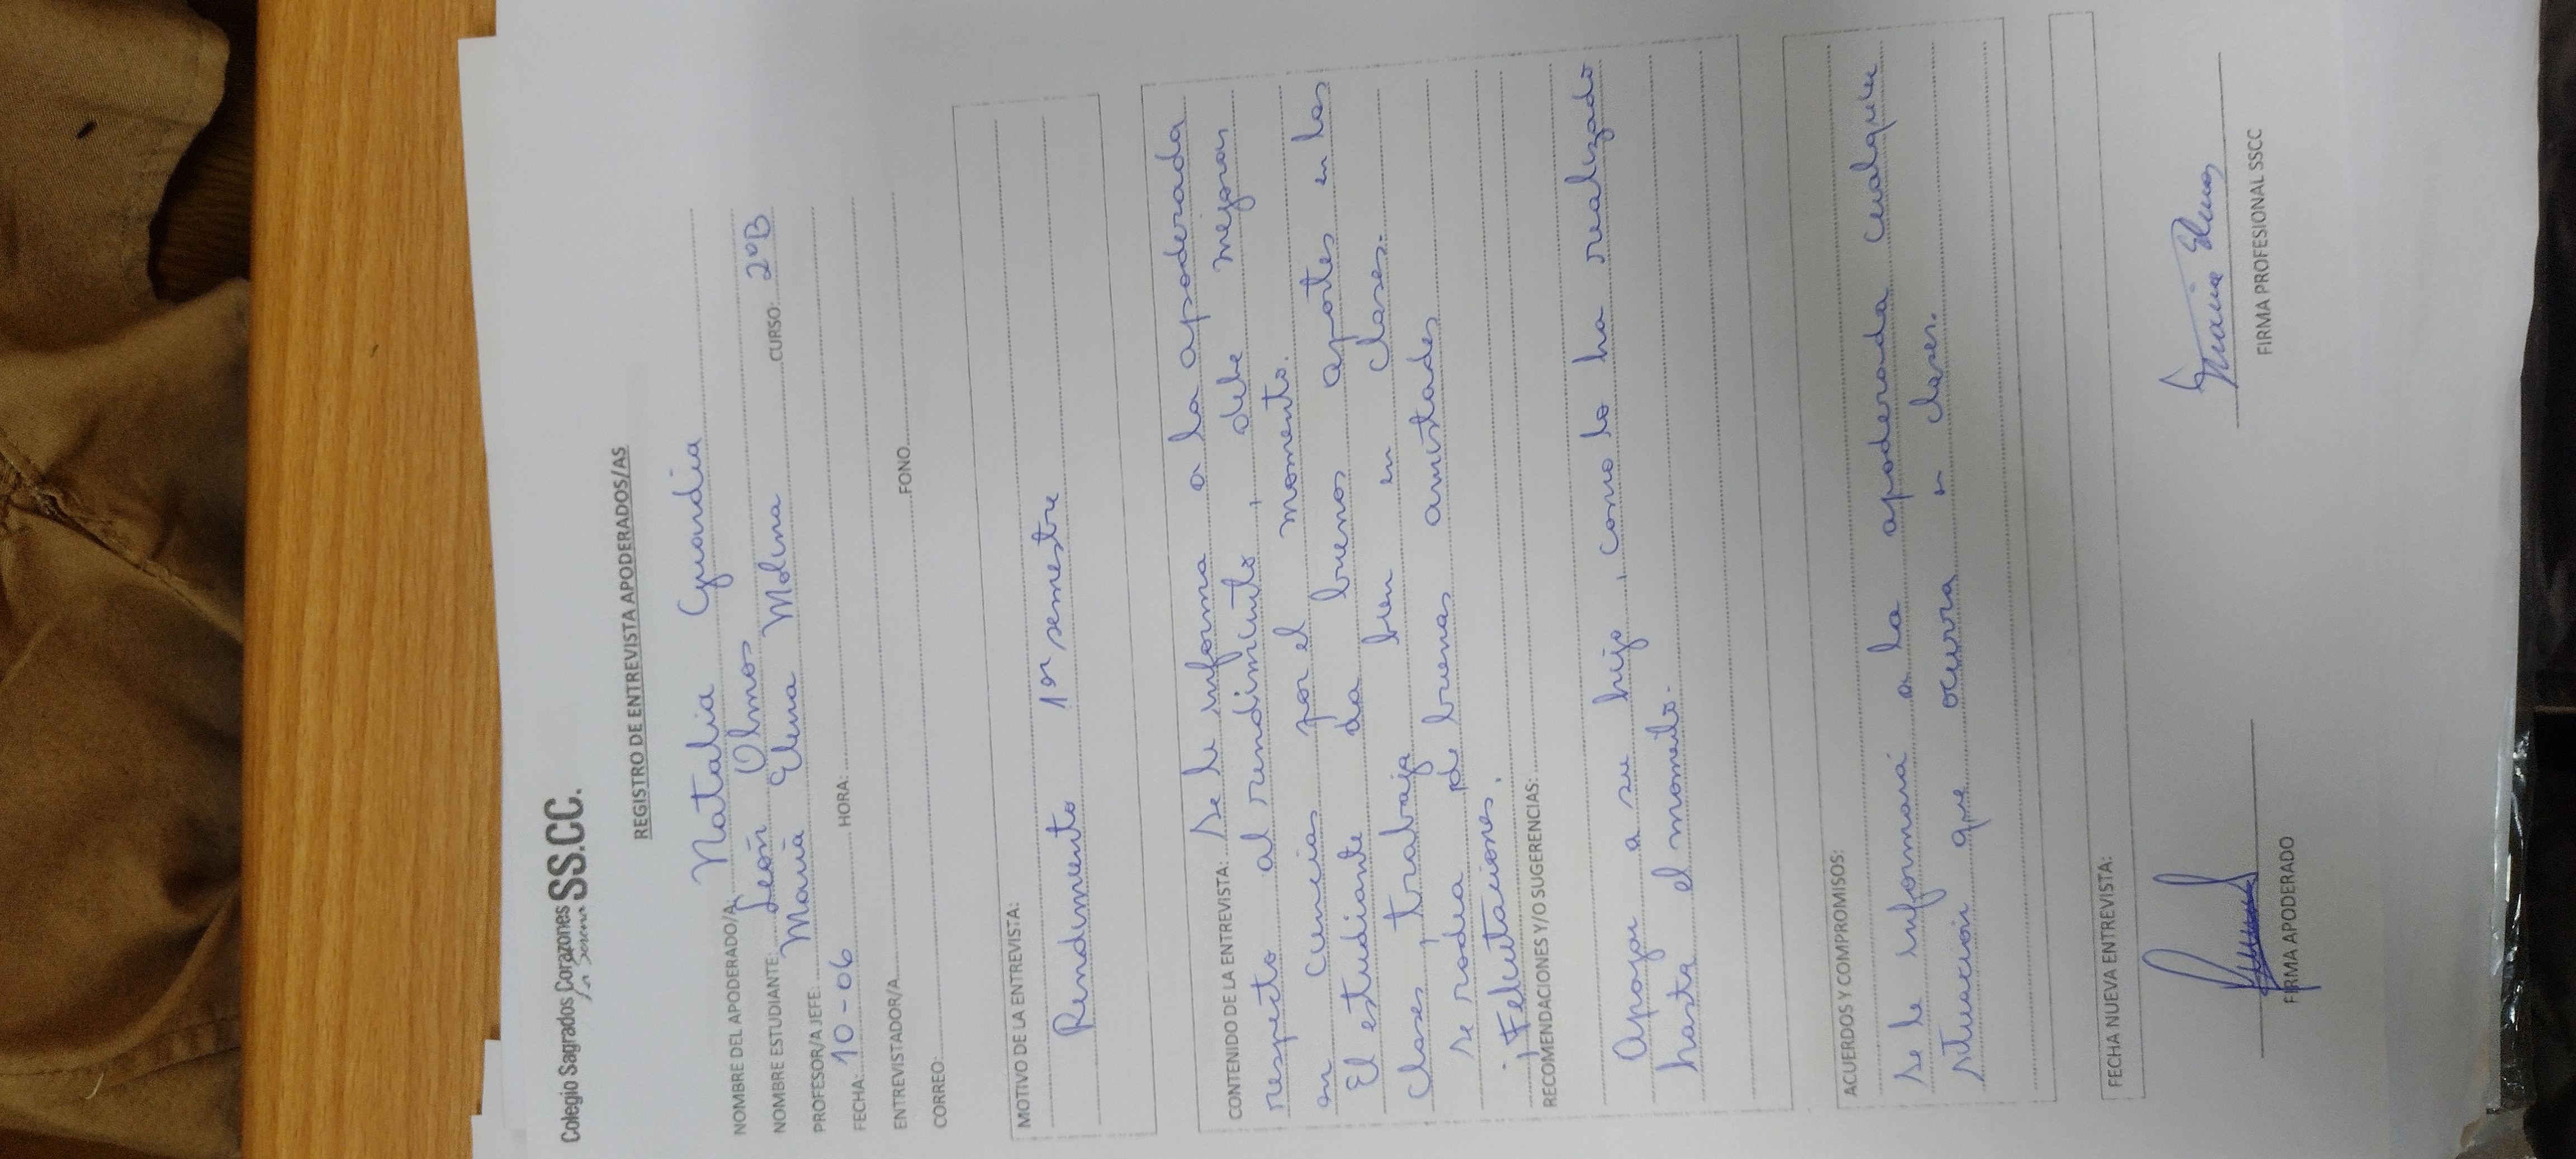 Colegio Sagrados Corazones SS.CC.
La Serena
REGISTRO DE ENTREVISTA APODERADOS/AS
NOMBRE DEL APODERADO/A: Natalia Guardia
NOMBRE ESTUDIANTE: León Olmos CURSO: 2ºB
PROFESOR/A JEFE: María Elena Molina
FECHA: 10-06 HORA:
ENTREVISTADOR/A FONO
CORREO:
MOTIVO DE LA ENTREVISTA:
Rendimiento 1er semestre
CONTENIDO DE LA ENTREVISTA: Se le informa a la apoderada
respecto al rendimiento, debe mejorar
en ciencias por el momento.
El estudiante da buenos aportes en las
clases, trabaja bien en clases.
Se rodea de buenas amistades
¡Felicitaciones.
RECOMENDACIONES Y/O SUGERENCIAS:
Apoyar a su hijo, como lo ha realizado
hasta el momento.
ACUERDOS Y COMPROMISOS:
Se le informará a la apoderada cualquier
situación que ocurra en clases.
FECHA NUEVA ENTREVISTA:
FIRMA APODERADO
FIRMA PROFESIONAL SSCC